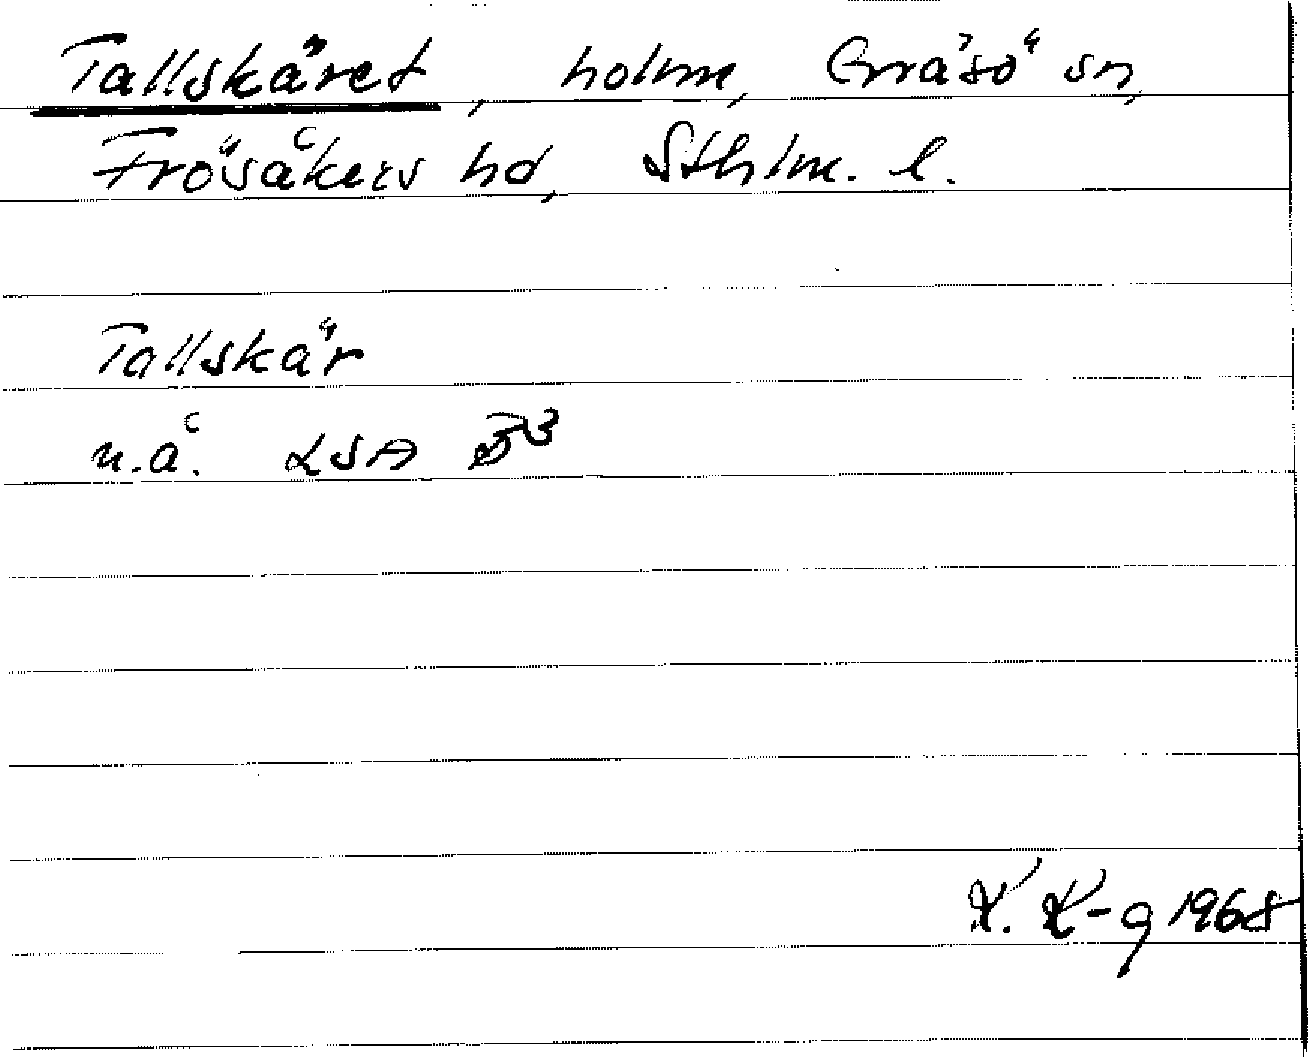 Tallskäret, holm, Gräsö sn,
Frösåkers hd, Sthlm. l.
Tallskär
n.å. LSA B³
K. K-g 1968